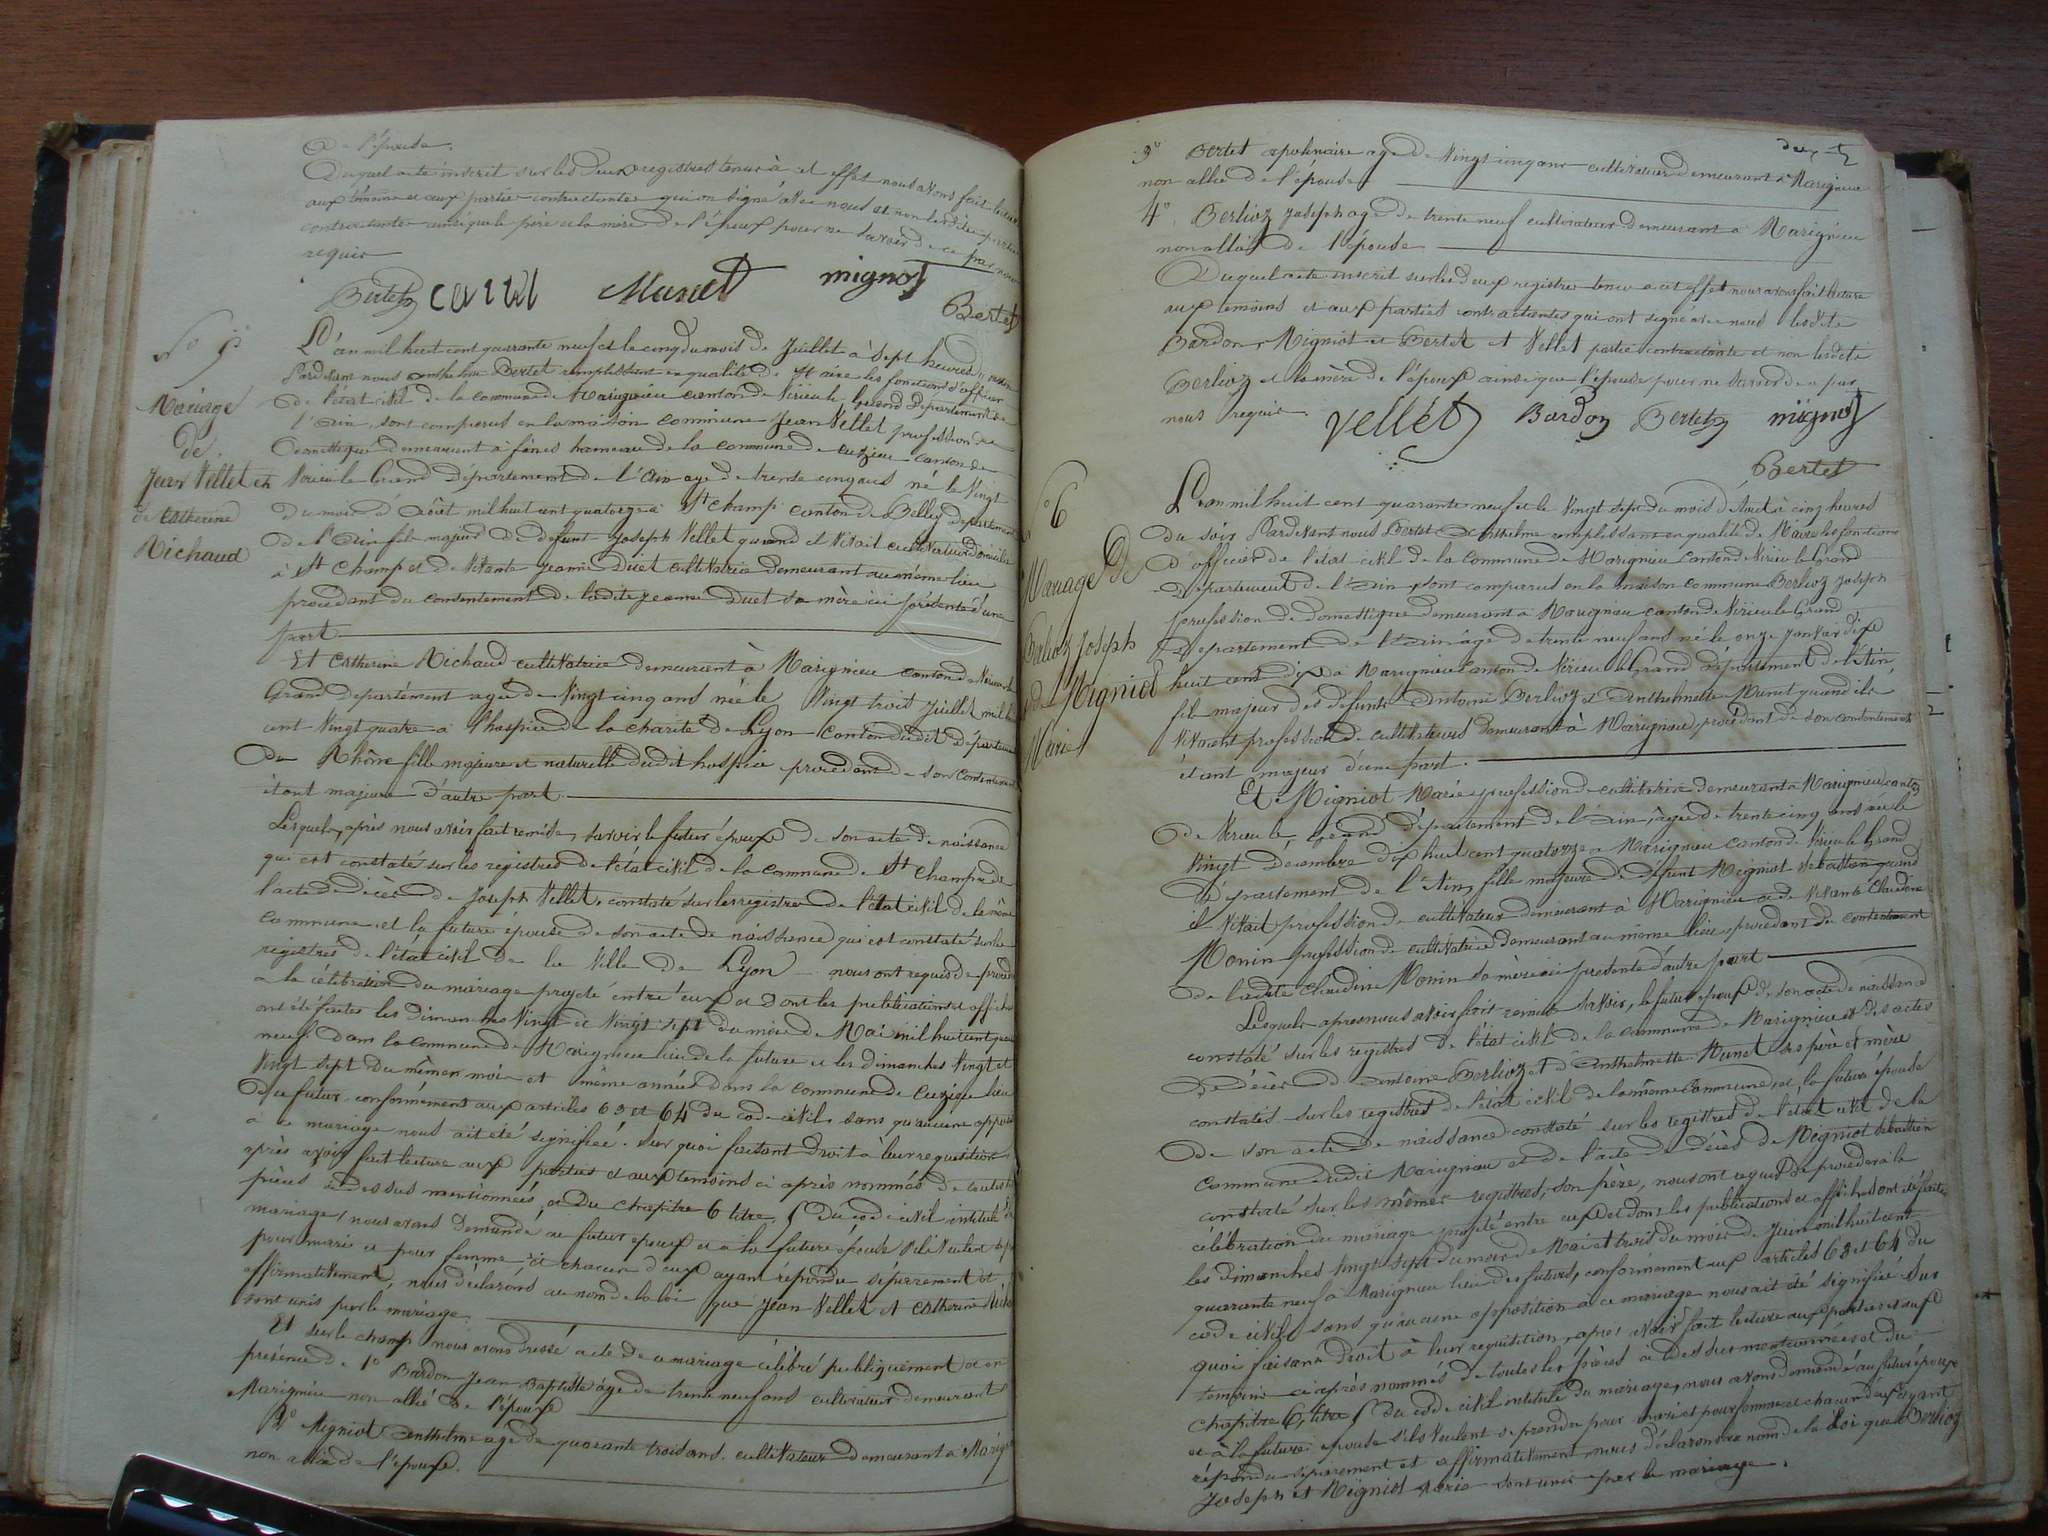 De l'épouse.
Duquel acte inscrit sur les deux registres tenus à cet effet nous avons fait lecture
aux témoins et aux parties contractantes qui on signé avec nous et non lesdites parties
contractantes ainsi que le père et la mère de l'époux pour ne savoir de ce par nous
requis
Bertet Munet mignot
Bertet
Mariage
de
Jean Vellet et
de Catherine
Richaud
L'an mil huit cent quarante neuf et le cinq du mois de Juillet à Sept heures
Pardevant nous Bertet remplissant en qualité de Maire les fonctions d'officier
de l'état civil de la commune de Marignieu canton de Virieu le Grand Département de
l'Ain, sont comparus en la maison commune Jean Vellet profession de
Domestique demeurant à hameau de la commune de cuzieu canton de
Virieu le Grand Département de l'Ain agé de trente cinq ans né le Vingt
Du mois d'Août mil huit cent quatorze à St champ canton de Belley département
de l'Ain fils majeur de defunt Joseph Vellet quand il vivait cultivateur Domicilié
à St Champ et de Vivante Jeanne Duet cultivatrice demeurant au même lieu
procedant du consentement de ladite Jeanne Duet sa mère ici présente d'une
part
Et Catherine Richaud cultivatrice demeurant à Marignieu canton de Virieu le
Grand departément agée de Vingt cinq ans née le Vingt trois Juillet mil huit
cent Vingt quatre à l'hospice de la charité de Lyon Canton dudit département
Du Rhône fille majeure et naturelle dudit hospice procedant de son consentement
étant majeure d'autre part.
Lesquels, après nous avoir fait remise, savoir le futur époux de son acte de naissance
qui est constaté sur les registres de l'état civil de la commune de St Champ et de
l'acte de décès de Joseph Vellet, constaté sur les registres de l'état civil de la même
commune, et la future épouse de son acte de naissance qui est constaté sur les
registres de l'état civil de la Ville de Lyon nous ont requis de procéder
a la célébration du mariage projeté entre eux et dont les publications et affiches
ont été faites les dimanches Vingt et Vingt sept du mois de Mai mil huit cent quarante
neuf dans la commune de Marignieu lieu de la future et les dimanches Vingt et
Vingt sept du même mois et même année dans la commune de Cuzieu lieu
Du futur conformément aux articles 63 et 64 du code civil, sans qu'aucune opposition
à ce mariage nous ait été signifiée. Sur quoi faisant Droit à leur requisition
après avoir fait lecture aux parties et aux temoins ci après nommés de toutes les
pièces ci dessus mentionnées, et du chapitre 6 titre 5 du code civil intitulé du
mariage, nous avons demandé au futur epoux et à la future épouse s'ils veulent se prendre
pour mari et pour femme, et chacun d'eux ayant répondu séparement et
affirmativement, nous déclarons au nom de la loi que Jean Vellet et Catherine Richaud
sont unis par le mariage.
Et sur le champ nous avons dressé acte de ce mariage célébré publiquement et en
présence de 1º Bardon Jean Baptiste âgé de trente neuf ans cultivateur demeurant
Marignieu non allié de l'épouse
2º Migniot Anthelme agé de quarante trois ans, cultivateur demeurant à Marignieu
non allié de l'épouse.
deux
3º Bertet apolinaire agé de Vingt cinq ans cultivateur demeurant à Marignieu
non allié de l'épouse
4º Berlioz Joseph agé de trente neuf cultivateur demeurant à Marignieu
non allié de l'épouse
Duquel acte inscrit sur les deux registres tenus à cet effet nous avons fait lecture
aux temoins et aux parties contractantes qui ont signé avec nous lesdits
Bardon, Migniot et Bertet et Vellet partie contractante et non lesdits
Berlioz et la mère de l'époux ainsi que l'épouse pour ne savoir de ce par
nous requis.
Vellet Bardon Bertet mignot
Bertet
Nº 6
Mariage de
Berlioz Joseph
et de Migniot
Marie
L'an mil huit cent quarante neuf et le Vingt sept du mois d'Août à cinq heures
du soir Pardevant nous Bertet Anthelme remplissant en qualité de Maire les fonctions
d'officier de l'état civil de la commune de Marignieu Canton de Virieu le Grand
Département de l'Ain, sont comparus en la maison commune Berlioz Joseph
profession de Domestique demeurant à Marignieu canton de Virieu le Grand
Département de l'Ain âgé de trente neuf ans né le onze Janvier dix
huit cent dix à Marignieu canton de Virieu le Grand département de l'Ain,
fils majeur des défunts Antoine Berlioz et Anthelmette Munet quand ils
vivaient profession de cultivateurs demeurant à Marignieu, procédant de son consentement
étant majeur d'une part.
Et Migniot Marie profession de cultivatrice demeurant à Marignieu canton
de Virieu le Grand département de l'Ain, âgée de trente cinq ans née le
Vingt Décembre dix huit cent quatorze à Marignieu canton de Virieu le Grand
département de l'Ain, fille majeure de défunt Migniot Sébastien quand
il vivait profession de cultivateur demeurant à Marignieu et de Vivante Claudine
Monin profession de cultivatrice demeurant au même lieu procédant du consentement
de ladite Claudine Monin sa mère ici présente d'autre part
Lesquels après nous avoir fait remise savoir, le futur époux de son acte de naissance
constaté sur les registres de l'état civil de la commune de Marignieu et des actes
de décès d'Antoine Berlioz et d'Anthelmette Munet ses père et mère
constatés sur les registres de l'état civil de la même commune, et la future épouse
de son acte de naissance constaté sur les registres de l'état civil de la
commune dudit Marignieu et de l'acte de décès de Migniot Sébastien
constaté sur les mêmes registres, son père, nous ont requis de procéder à la
célébration du mariage projeté entre eux et dont les publications et affiches ont été faites
les dimanches Vingt sept du mois de Mai et trois du mois de Juin mil huit cent
quarante neuf à Marignieu lieu des futurs, conformement aux articles 63 et 64 du
code civil sans qu'aucune opposition à ce mariage nous ait été signifiée Sur
quoi faisant Droit à leur requisition, après avoir fait lecture aux parties et aux
temoins ci après nommés de toutes les pièces ci dessus mentionnées et du
chapitre 6, titre 5 du code civil intitulé du mariage, nous avons demandé au futur époux
et à la future épouse s'ils veulent se prendre pour mari et pour femme et chacun d'eux ayant
répondu séparement et affirmativement, nous déclarons au nom de la loi que Berlioz
Joseph et Migniot Marie sont unis par le mariage.